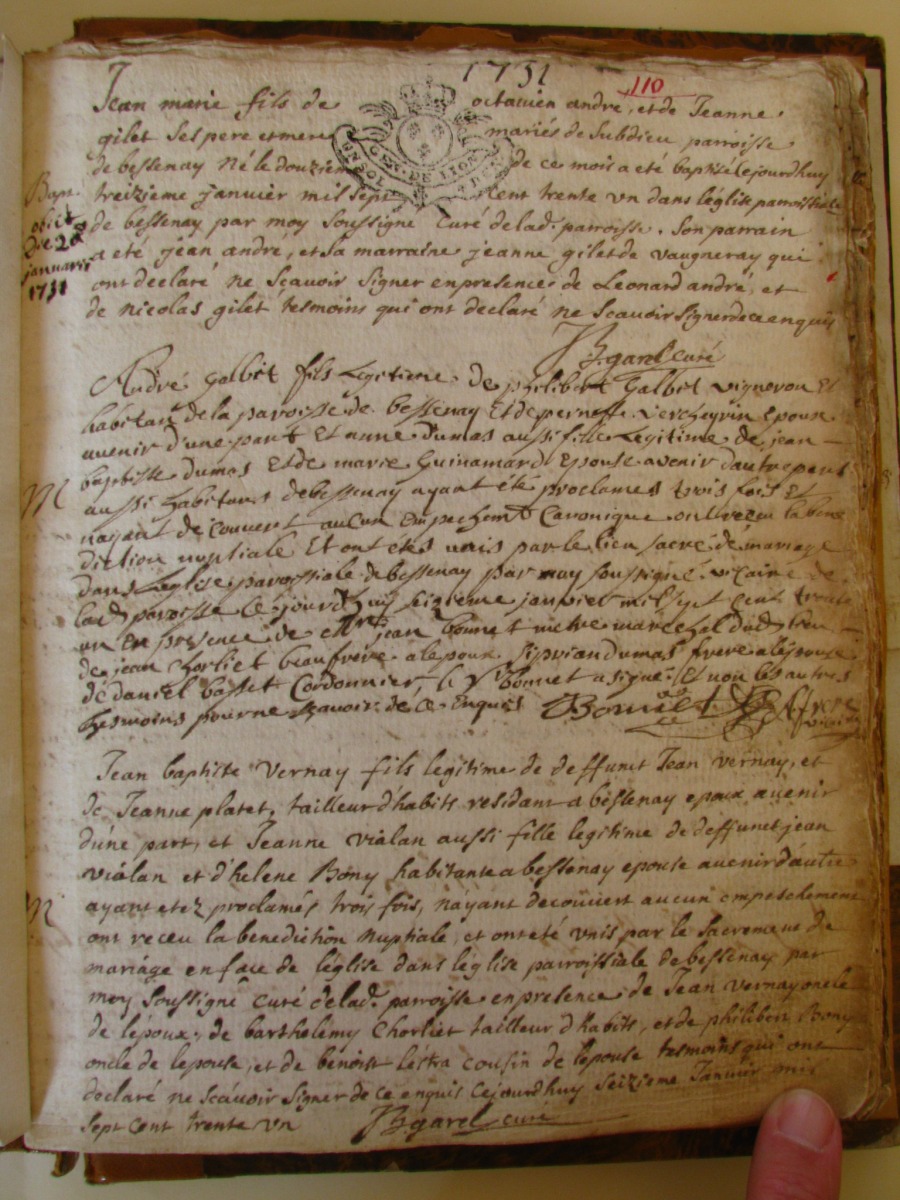 1731
110
Jean marie fils de octavien andré, et de Jeanne
gilet ses pere et mere mariés de Subdieu parroisse
de bessenay né le douzieme de ce mois a eté baptisé cejourdhuy
treizieme janvier mil sept cent trente un dans léglise parroissiale
de bessenay par moy soussigné curé de lad. parroisse. Son parrain
a eté jean andré, et sa marraine jeanne gilet de vaugneray qui
ont declaré ne scavoir signer en presence de Leonard andré, et
de nicolas gilet tesmoins qui ont declaré ne scavoir signer de ce enquis
Bapt.
obiit
die 28
januarii
1731
GEN. DE LION
garel curé
André galbit fils Legitime de philibert Galbit vigneron Et
habitant de la paroisse de bessenay Et de pernette vercheyrin Epoux
avenir d'une part Et anne Dumas aussi fille Legitime de jean
baptiste Dumas Et de marie Guinamard Epouse avenir dautre part
aussi habitans de bessenay ayant été proclamés trois fois Et
nayant decouvert aucun Empechemt Canonique ont receu la bene
diction nuptiale Et ont étés unis par le lien sacré de mariage
dans Leglise paroissiale de bessenay par moy soussigné vicaire de
lad paroisse Ce jourdhuy seizieme janvier mil sept cent trente
un En presence de jean bonnet marechal dud lieu
de jean chorliet beaufrere a lepoux siprian Dumas frere a lépouse
de Daniel basset Cordonnier, le Sr bonnet a signé Et non les autres
tesmoins pour ne scavoir de ce Enquis Bonnet
M
Jean baptiste Vernay fils legitime de deffunct Jean vernay, et
de Jeanne platet, tailleur d'habits residant a bessenay epoux avenir
d'une part, et Jeanne vialan aussi fille legitime de deffunct jean
vialan et d'helene Bony habitante a bessenay epouse avenir d'autre
ayant etez proclamés trois fois, n'ayant decouvert aucun empeschement
ont receu la benediction nuptiale, et ont eté unis par le sacrement de
mariage en face de léglise dans léglise parroissiale de bessenay par
moy soussigné curé de lad. parroisse en presence de Jean vernay oncle
de lépoux, de barthelemy Chorliet tailleur d'habits, et de philibert Bony
oncle de lepouse, et de benoist cousin de lepouse tesmoins qui ont
declaré ne scavoir signer de ce enquis cejourdhuy seizieme Janvier mil
sept cent trente un garel curé
M